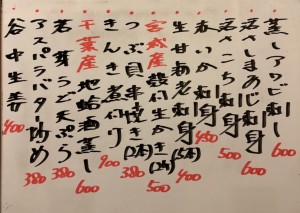 蒸しアワビ刺し 600
活さしまあじ刺身 500
活さこち刺身 500
赤いか刺身 450
生甘海老刺身(5本) 400
宮城産 殻付生かき(2ケ) 500
つぶ貝串焼き(2本) 380
きんき煮付け 900
千葉産 地蛤酒蒸し 600
若芽うど天ぷら 380
アスパラバター炒め 380
谷中生姜 400